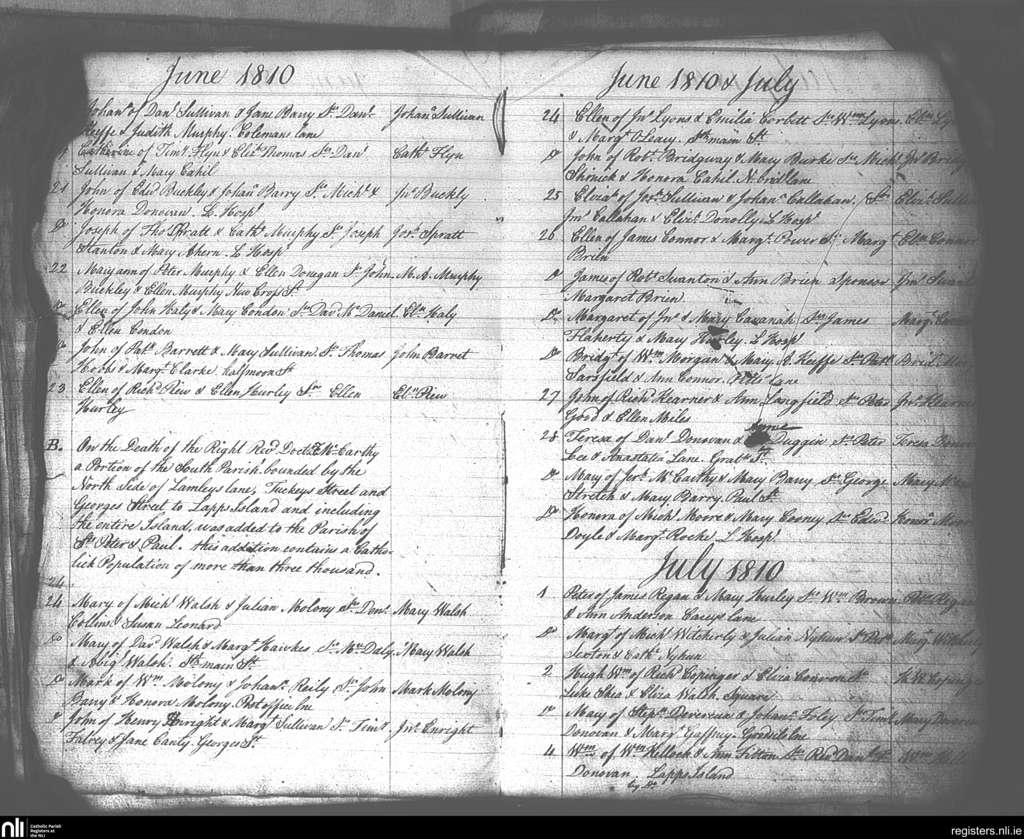 June 1810
Johan^a of Dan^l Sullivan & Jane Barry S^rs Dan^l
Keeffe & Judith Murphy. Colemans lane
Johan^a Sullivan
Catherine of Tim^y Flyn & Eliz^a Thomas S^rs Dan^l
Sullivan & Mary Cahil
Cath^e Flyn
21 John of Edw^d Buckley & Johan^a Barry S^rs Mich^l &
Honora Donovan. L. Hosp^l
Jn^o Buckly
D^o Joseph of Tho^s Spratt & Cath^e Murphy S^rs Joseph
Stanton & Mary Ahern. L Hosp
Jos^h Spratt
22 Maryann of Peter Murphy & Ellen Donegan S^rs John
Buckley & Ellen Murphy
M. A. Murphy
D^o Ellen of John Haly & Mary Condon S^rs Dav^d M^c Daniel
& Ellen Condon
El^n Haly
D^o John of Pat^k Barrett & Mary Sullivan S^rs Thomas
Hobbs & Marg^t Clarke. halfmoon S^t
John Barret
23 Ellen of Rich^d Riew & Ellen Hurley S^r Ellen
Hurley
El^n Riew
B. On the Death of the Right Rev^d Doct^r M^cCarthy
a Portion of the South Parish bounded by the
North side of Lamleys lane, Tuckeys Street and
Georges Street, to Lapps Island and including
the entire Island, was added to the Parish of
S^t Peter & Paul. this addition contains a Catho-
lick Population of more than three thousand.
24
24 Mary of Mich^l Walsh & Julian Molony S^rs Den^s
Collins & Susan Leonard
Mary Walsh
D^o Mary of Dav^d Walsh & Marg^t Hawkes S^rs W^m Daly
& Abig^l Walsh. S^th main S^t
Mary Walsh
D^o Mark of W^m Molony & Johan^a Reily S^rs John
Barry & Honora Molony. Post office lne
Mark Molony
D^o John of Henry Enright & Marg^t Sullivan S^rs Tim^y
Falvey & Jane Canty. Georges S^t
Jn^o Enright
June 1810 & July
24 Ellen of Jn^o Lyons & Emilia Corbett S^rs W^m Lyons
& Marg^t OLeary. S^th main S^t
D^o John of Rob^t Bridgway & Mary Burke S^rs Mich^l
& Honora Cahil.
25 Eliza^h of Jer^h Sullivan & Johan^a Callahan S^rs
Jer^h Callahan & Eliz^h Donolly. L Hosp^l
26 Ellen of James Connor & Marg^t Power S^r Marg^t
Brien
El^n Connor
D^o James of Rob^t Swanton & Ann Brien Sponsor
Margaret Brien
D^o Margaret of Jn^o & Mary Cavanah S^rs James
Flaherty & Mary Hurley. L Hosp
D^o Bridg^t of W^m Morgan & Mary A. Keiffe S^rs Pat^k
Sarsfield & Ann Connor. Pitts lane
27 John of Rich^d Kearney & Ann Langfield S^rs Peter
Good & Ellen Miles
28 Teresa of Dan^l Donovan & Anne Duggin S^rs Peter
Lee & Anastatia Lane. Grab^n S^t
D^o Mary of Jer^h McCarthy & Mary Barry S^rs George
Stretch & Mary Barry. Paul S^t
D^o Honora of Mich^l Moore & Mary Cooney S^rs Edw^d
Doyle & Marg^t Roche L Hosp^l
July 1810
1 Peter of James Regan & Mary Hurley S^rs W^m Brown
& Ann Anderson. Caseys lane
D^o Marg^t of Mich^l Witcherly & Julian Nyhen S^rs
Sexton & Cath^e Nyhen
2 Hugh W^m of Rich^d Copinger & Eliza Conron S^rs
Luke Shea & Eliza Walsh. Square
D^o Mary of Step^n Devereux & Johan^a Foley S^rs Tim^y
Donovan & Marg^t Gaffney.
4 W^m of W^m & Ann Fitton S^rs Rev^d Dan^l
Donovan. Lapps Island
nli
Catholic Parish
Registers at
the NLI
registers.nli.ie